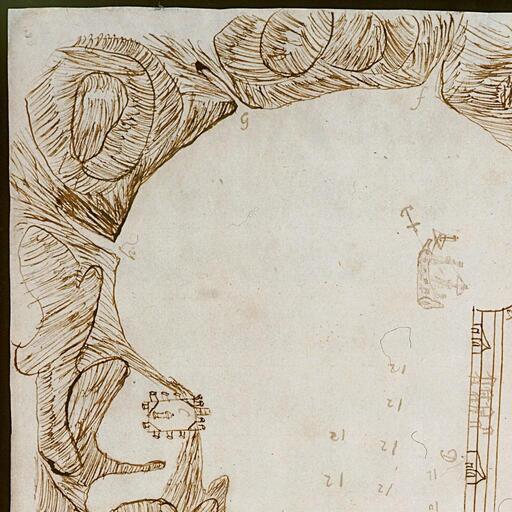 g
f
12
12
12
12
12
12
11
10